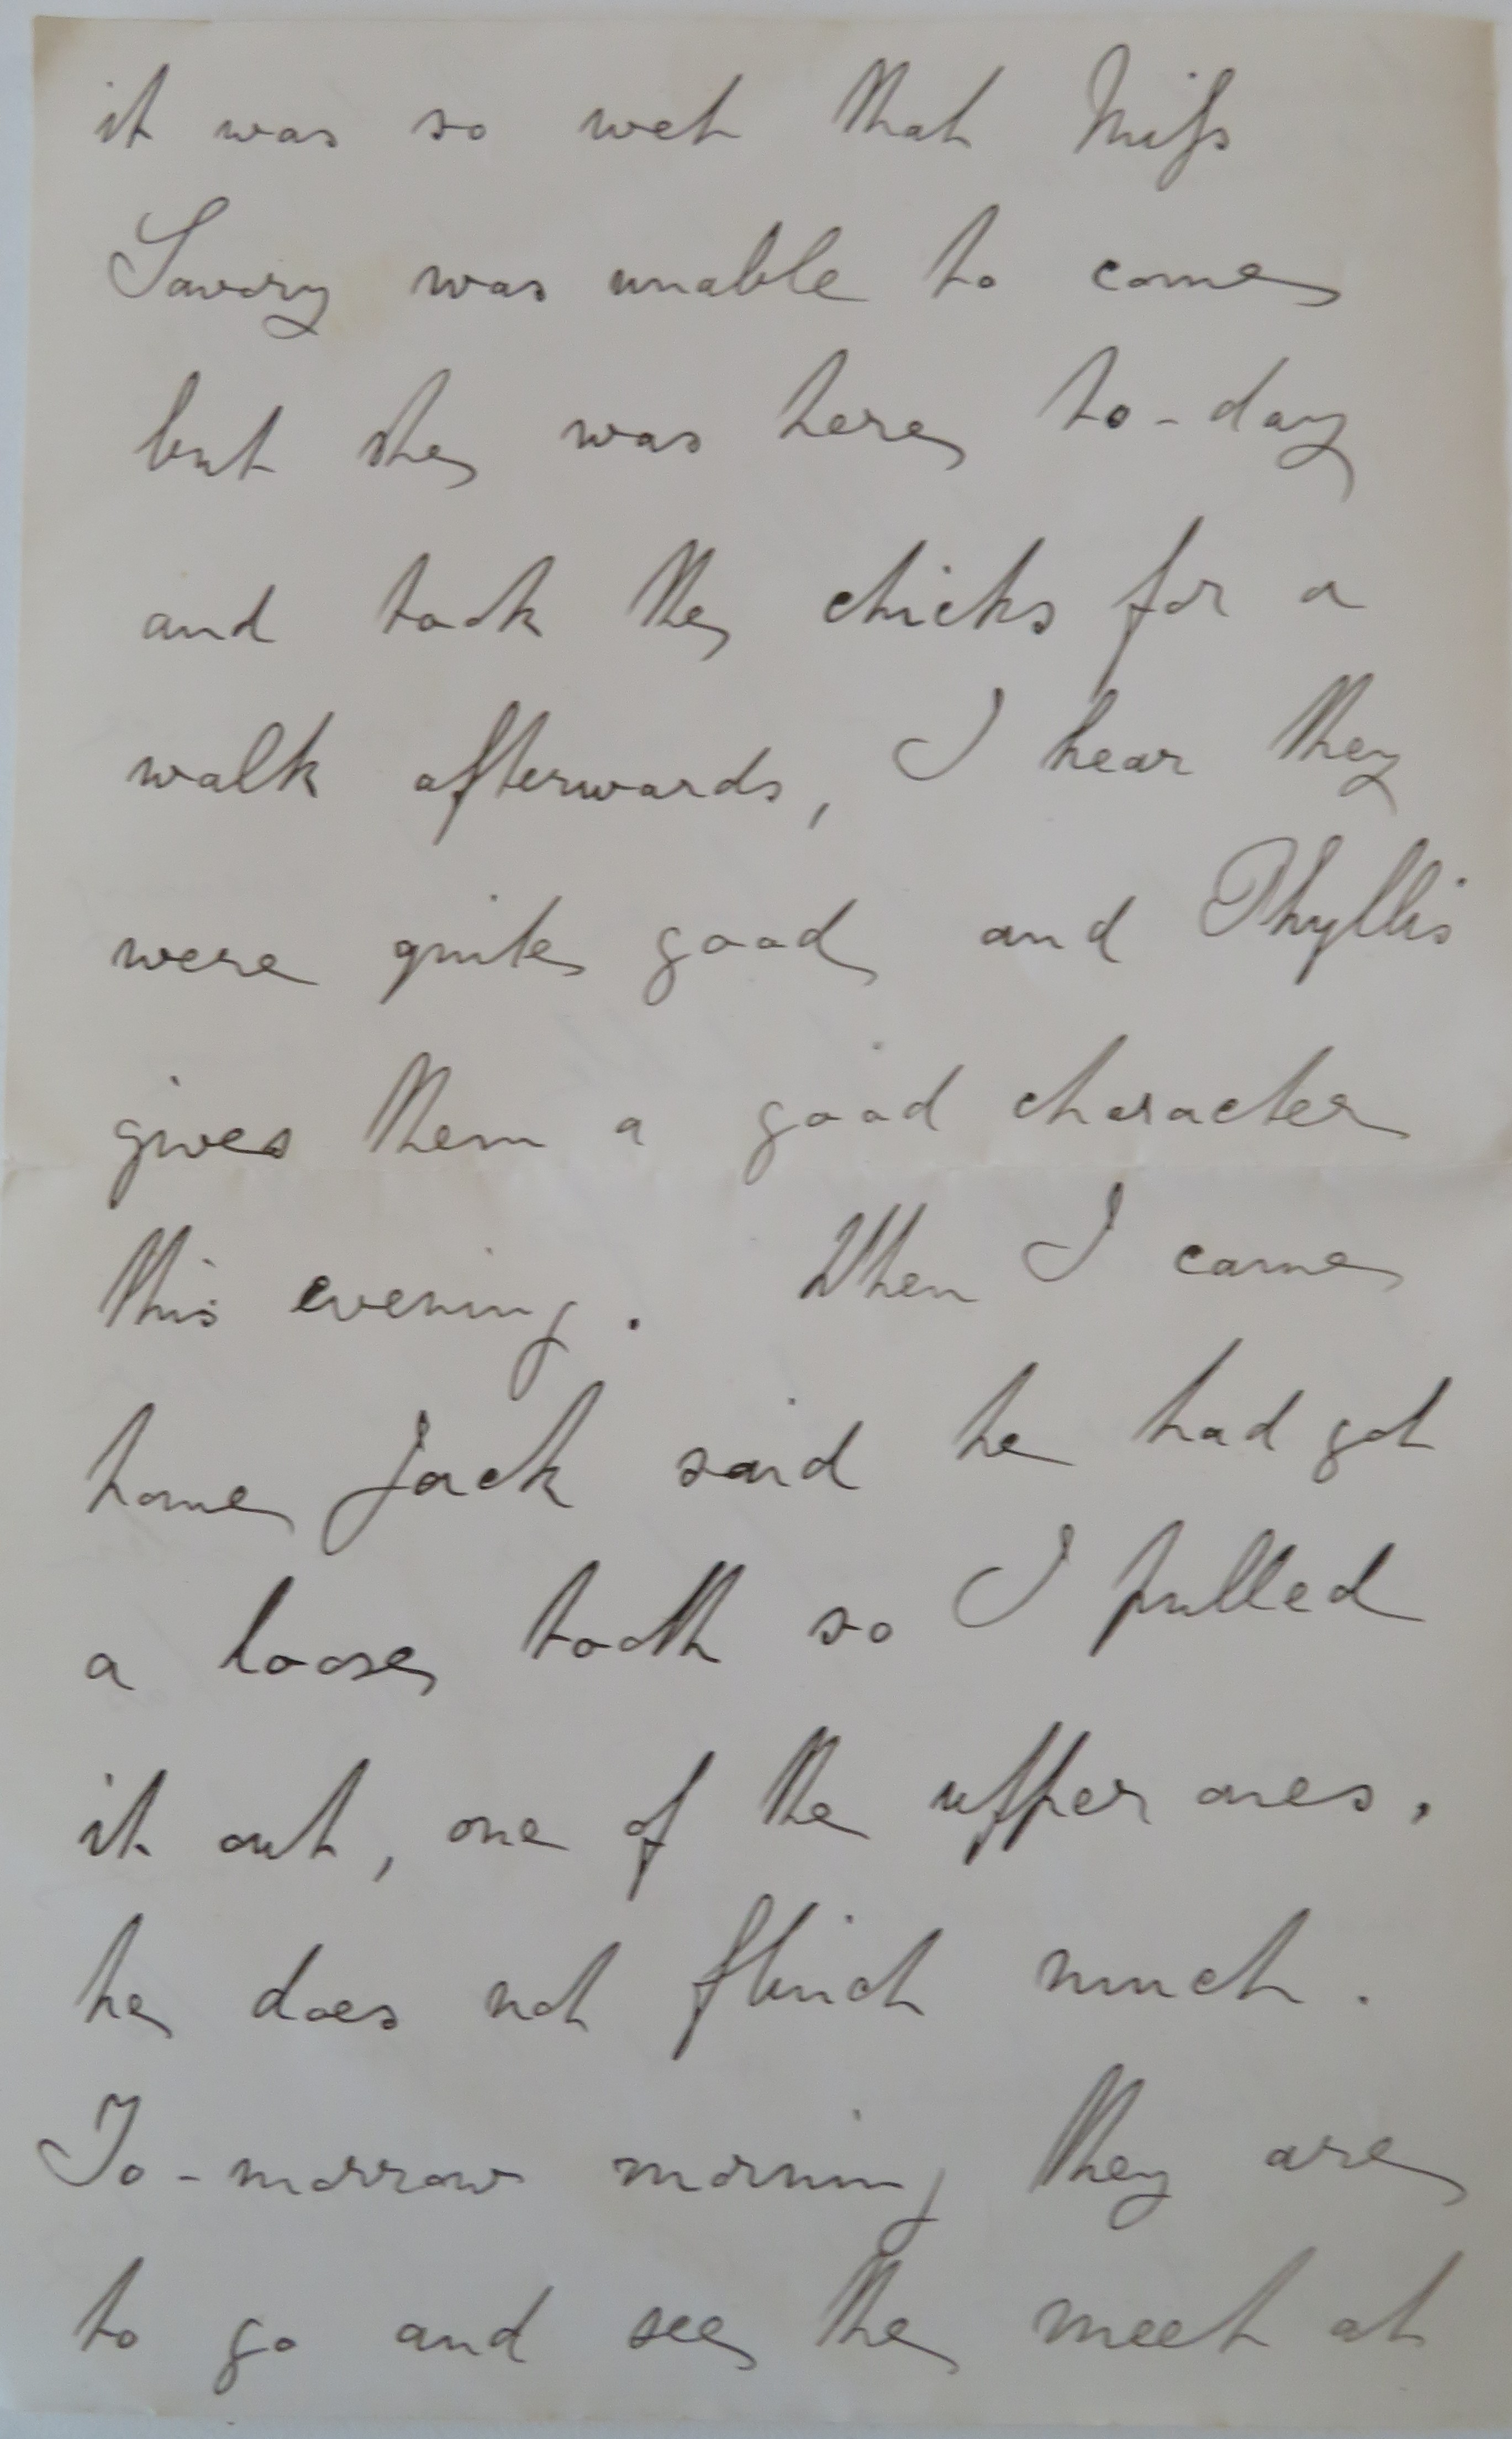 it was so wet that Miss
Savory was unable to come
but she was here to-day
and took the chicks for a
walk afterwards, I hear they
were quite good and Phyllis
gives them a good character
this evening. When I came
home Jack said he had got
a loose tooth so I pulled
it out, one of the upper ones.
he does not flinch much.
To-morrow morning they are
to go and see the meet at